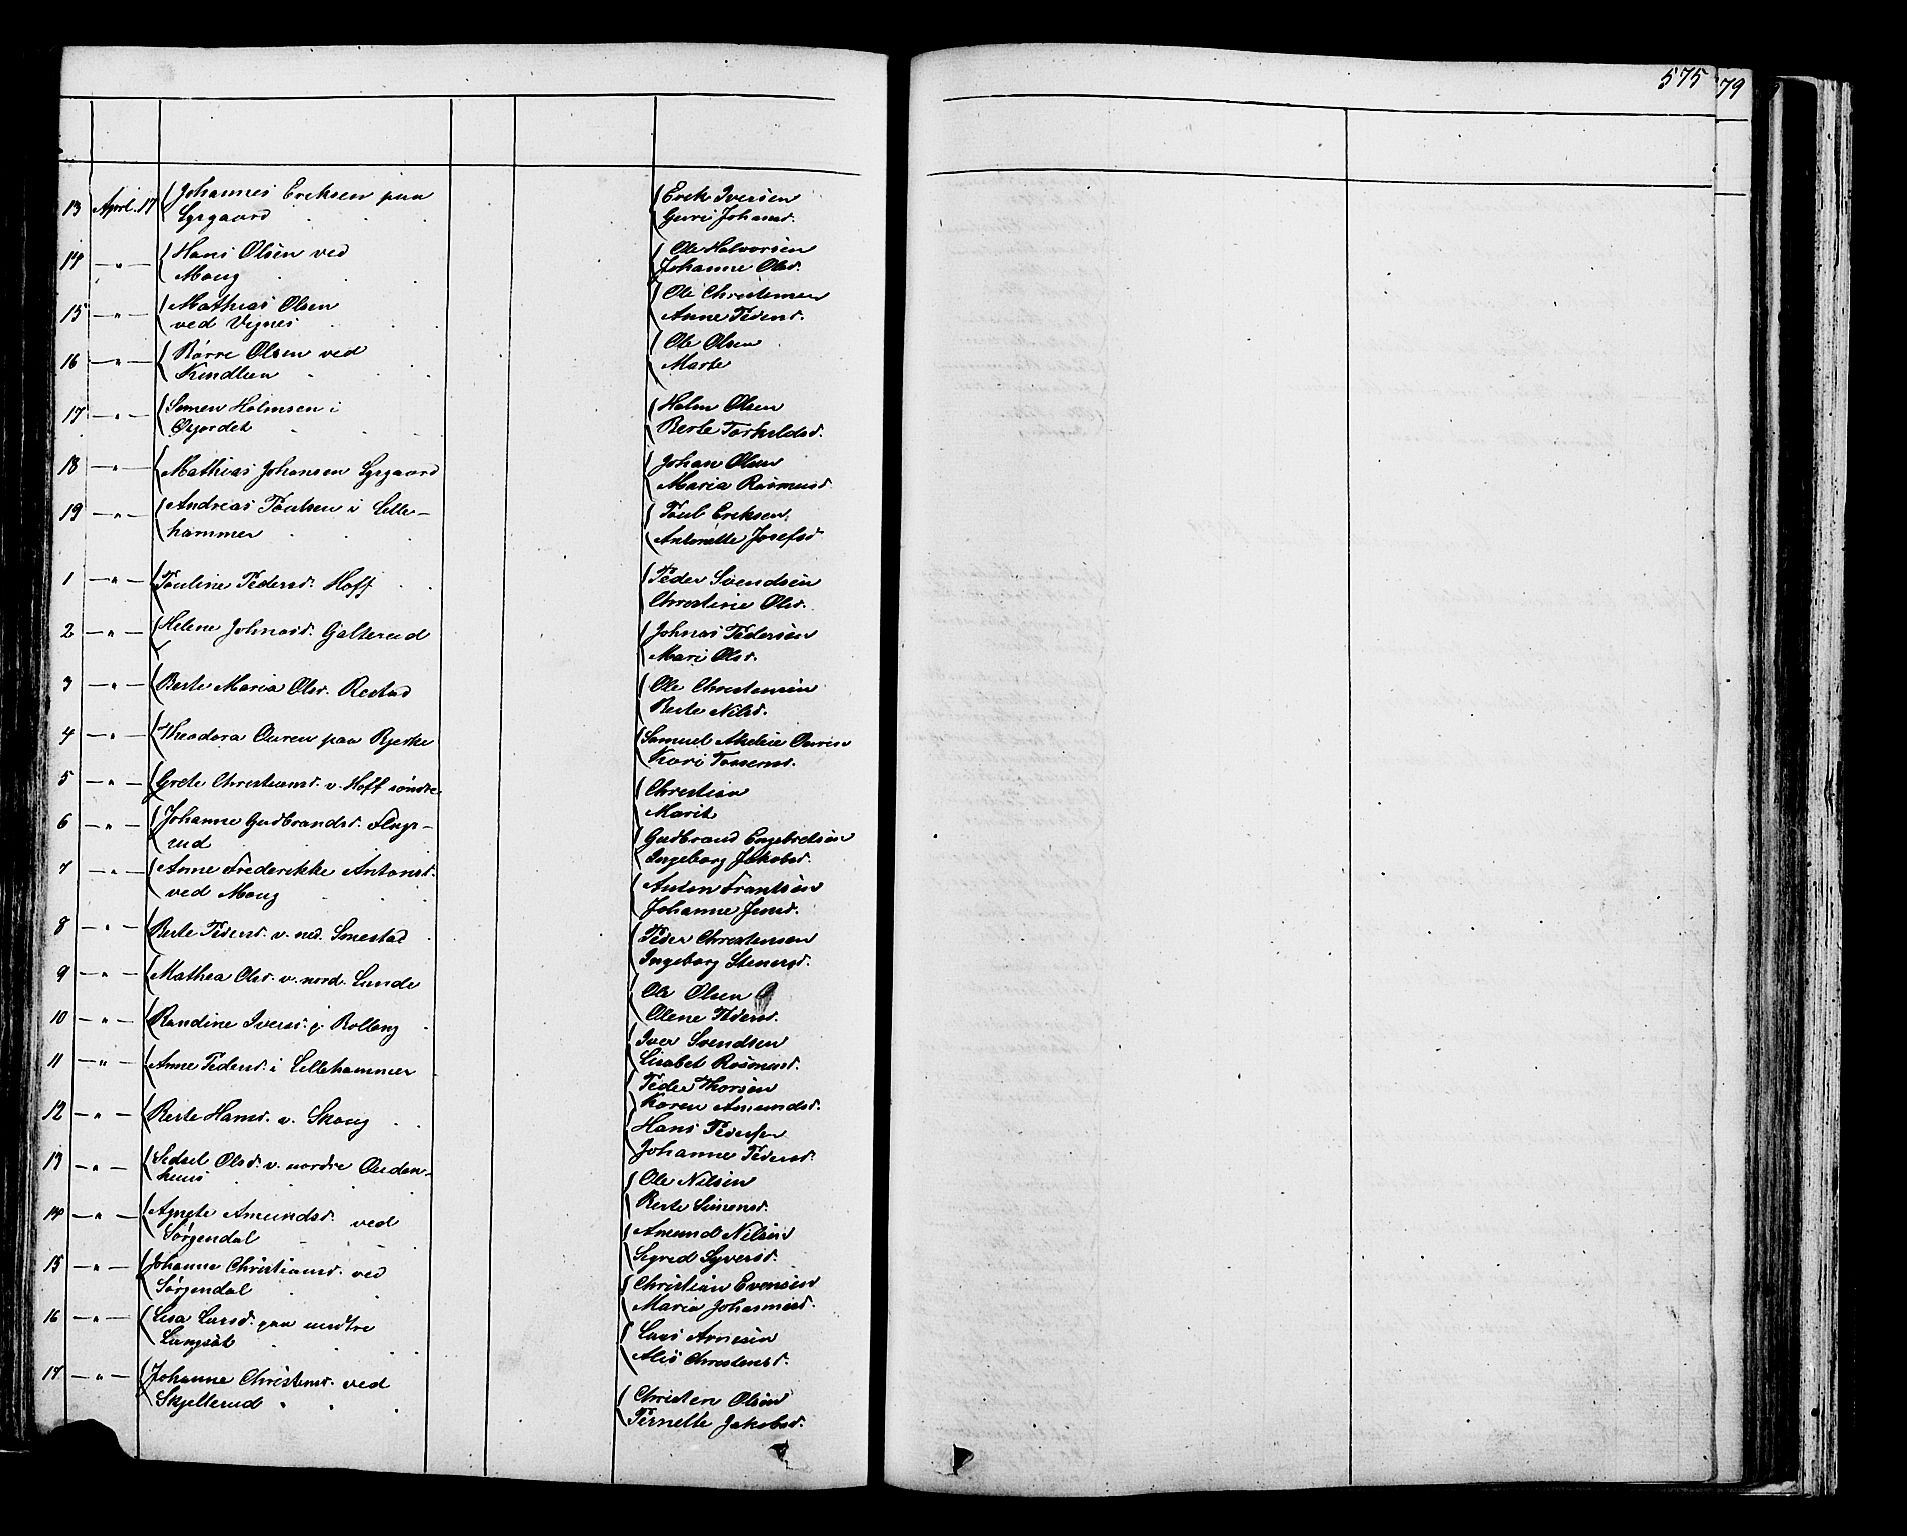 575
79
13 April 17 Johannes Eriksen paa Erik Iversen
Lysgaard Guri Johansd.
14 — " — Hans Olsen ved Ole Halvorsen
Moug Johanne Olsd.
15 — " — Mathias Olsen Ole Christensen
ved Vignes Anne Pedersd.
16 — " — Børre Olsen ved Ole Olsen
Kindlien Marte
17 — " — Simen Holmsen i Holm Olsen
Øijordet Berte Torkildsd.
18 — " — Mathias Johansen Lysgaard Johan Olsen
Maria Rasmusd.
19 — " — Andreas Poulsen i Lille- Poul Eriksen
hammer Antonette Josefsd
1 — " — Pouline Pedersd. Hoff Peder Svendsen
Christine Olsd.
2 — " — Helene Johnasd. Galterud Johnas Pedersen
Mari Olsd.
3 — " — Berte Maria Olsd. Restad Ole Christensen
Berte Nilsd.
4 — " — Theodora Ouren paa Bjerke Samuel Akeleie Ouren
Kari
5 — " — Grete Christiansd. v. Hoff søndre Christian
Marit
6 — " — Johanne Gudbrandsd. Flug- Gudbrand Engebretsen
rud Ingeborg Jakobsd.
7 — " — Anne Frederikke Antonsd. Anton Frantsen
ved Moug Johanne Jensd.
8 — " — Berte Pedersd. v. ned. Smestad Peder Christensen
Ingeborg Stenersd.
9 — " — Mathea Olsd. v. nord. Lunde Ole Olsen
Olene Pedersd.
10 — " — Randine Iversd. p. Rolloug Iver Svendsen
Lisabet Rasmusd.
11 — " — Anne Pedersd. i Lillehammer Peder Thorsen
Karen Amundsd.
12 — " — Berte Hansd. v. Skoug Hans Pedersen
Johanne Pedersd.
13 — " — Sidsel Olsd. v. nordre Ouden- Ole Nilsen
huus Berte Simensd.
14 — " — Agnete Amundsd. ved Amund Nilsen
Sørgendal Sigrid Syversd.
15 — " — Johanne Christiansd. ved Christian Evensen
Sørgendal Maria Johannesd.
16 — " — Lisa Larsd. paa medtre Lars Arnesen
Lungsæt Alis Christensd.
17 — " — Johanne Christensd. ved Christen Olsen
Skjellerud Pernelle Jakobsd.